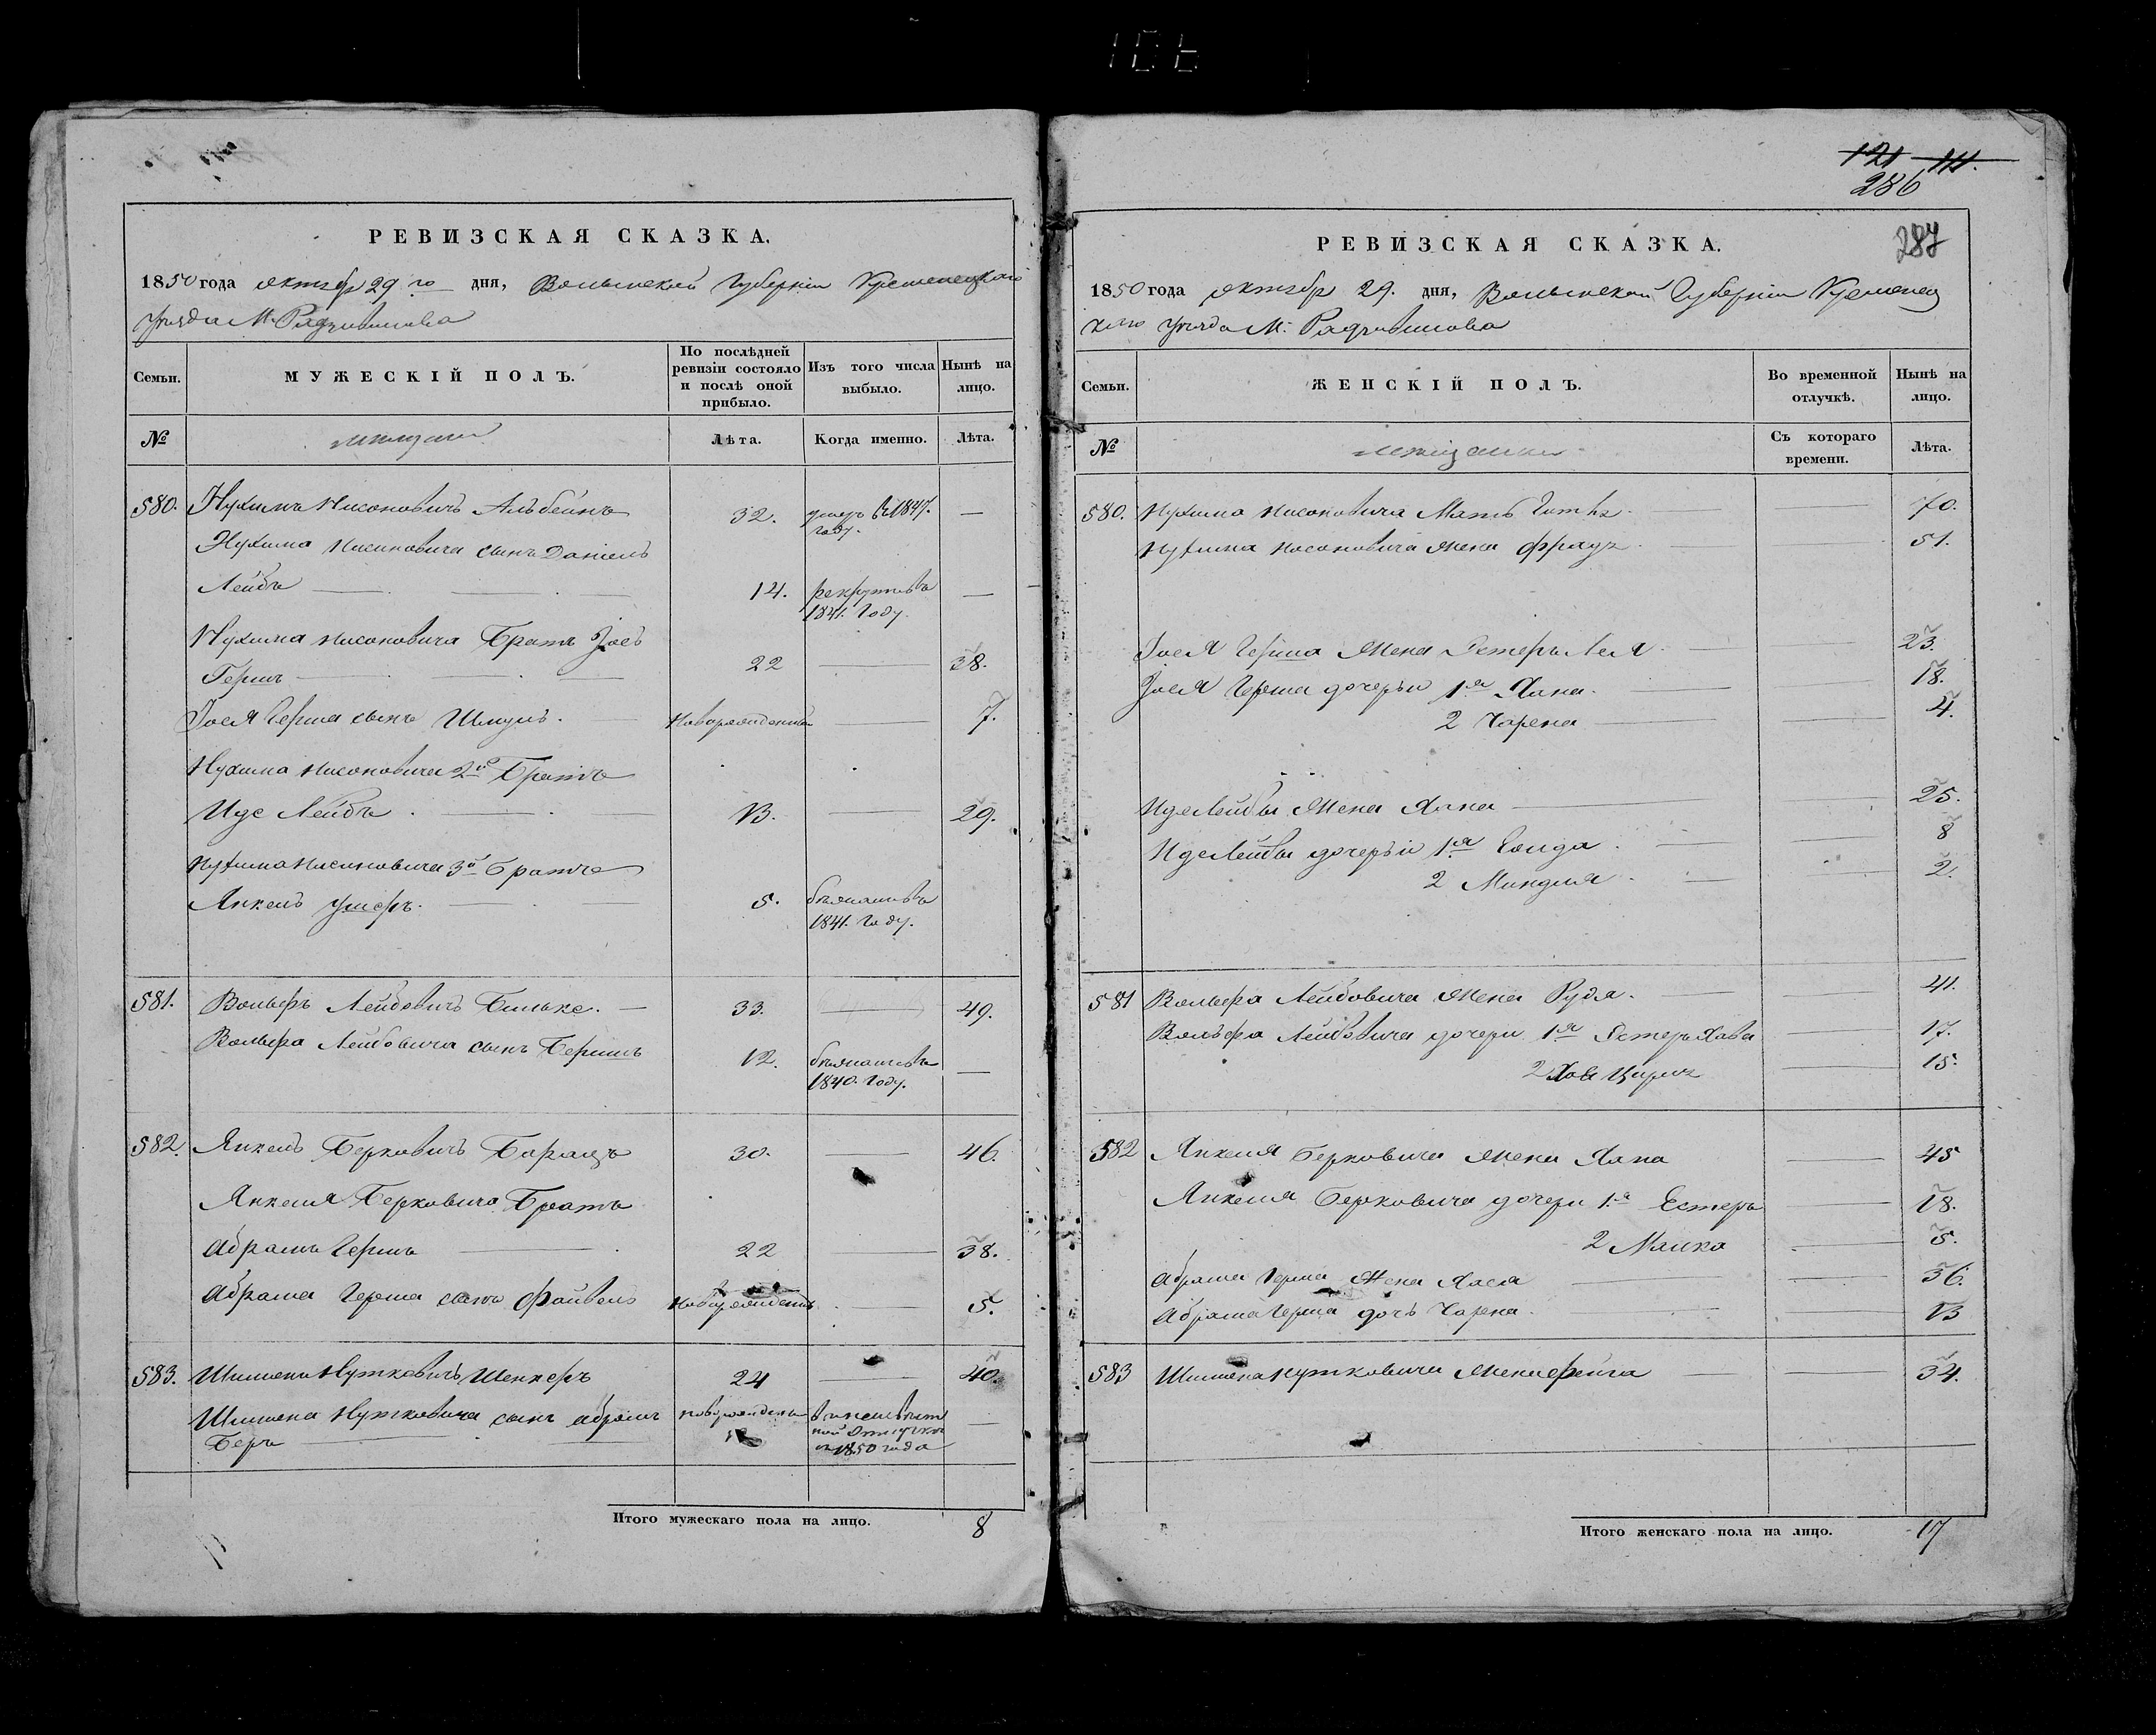 106
РЕВИЗСКАЯ СКАЗКА.
1850 года октябр 29 го дня, Волынской Губерніи Кременецкаго
Уѣзда М. Радзивилова
Семьи.
МУЖЕСКІЙ ПОЛЪ.
По послѣдней ревизіи состояло и послѣ оной прибыло.
Изъ того числа выбыло.
Нынѣ на лицо.
№
мещане
Лѣта.
Когда именно.
Лѣта.
580. Нухимъ Нисоновичъ 32. умеръ въ 1847. году. —
Нухима Нисоновича сынъ Даніель
Лейбъ 14. рекрутъ въ 1841. году. —
Нухима Нисоновича Братъ Іось
Гершъ 22 — 38.
Іося Герша сынъ Шмуль. Новорожденный — 7.
Нухима Нисоновича 2й Братъ
Иде Лейбъ 13. — 29.
Нухима Нисоновича 3й Братъ
Янкель Ушеръ. 5. бежалъ въ 1841. году.
581. Вольфъ Лейбовичъ 33. — 49.
Вольфа Лейбовича сынъ Бершъ 12. бежалъ въ 1840. году. —
582. Янкель Берковичъ 30. — 46.
Янкеля Берковича Братъ
Абрамъ Гершъ 22 — 38.
Абрама Герша сынъ Файвель Новорожденъ — 5.
583. Шимонъ Нутковичъ Шенкеръ 24 — 40.
Шимона Нутковича сынъ Абрамъ новорожденъ 1850 года —
Беръ
Итого мужескаго пола на лицо. 8
121 111.
286
287
РЕВИЗСКАЯ СКАЗКА.
1850 года октябр 29. дня, Волынской Губерніи Кременец
каго Уѣзда М. Радзивилова
Семьи.
ЖЕНСКІЙ ПОЛЪ.
Во временной отлучкѣ.
Нынѣ на лицо.
№
мещанки
Съ котораго времени.
Лѣта.
580. Нухима Нисоновича Мать 70.
Нухима Нисоновича Жена 51.
Іося Герша Жена Естеръ Лея 23.
Іося Герша дочерьи 1я Хана. 18.
2 Чарена 4.
Иде Лейбы Жена Хана 25.
Иде Лейбы дочерьи 1я 8
2 Миндля 2.
581 Вольфа Лейбовича Жена Рудя. 41.
Вольфа Лейбовича дочери 1я Естеръ Хава 17.
2 15.
582 Янкеля Берковича Жена Хана 45
Янкеля Берковича дочери 1.я Естеръ 18.
2 Малка 5.
Абрама Герша Жена Хася 36.
Абрама Герша дочь Чарена. 13
583 Шимона Нутковича Жена Фейга 34.
Итого женскаго пола на лицо. 17